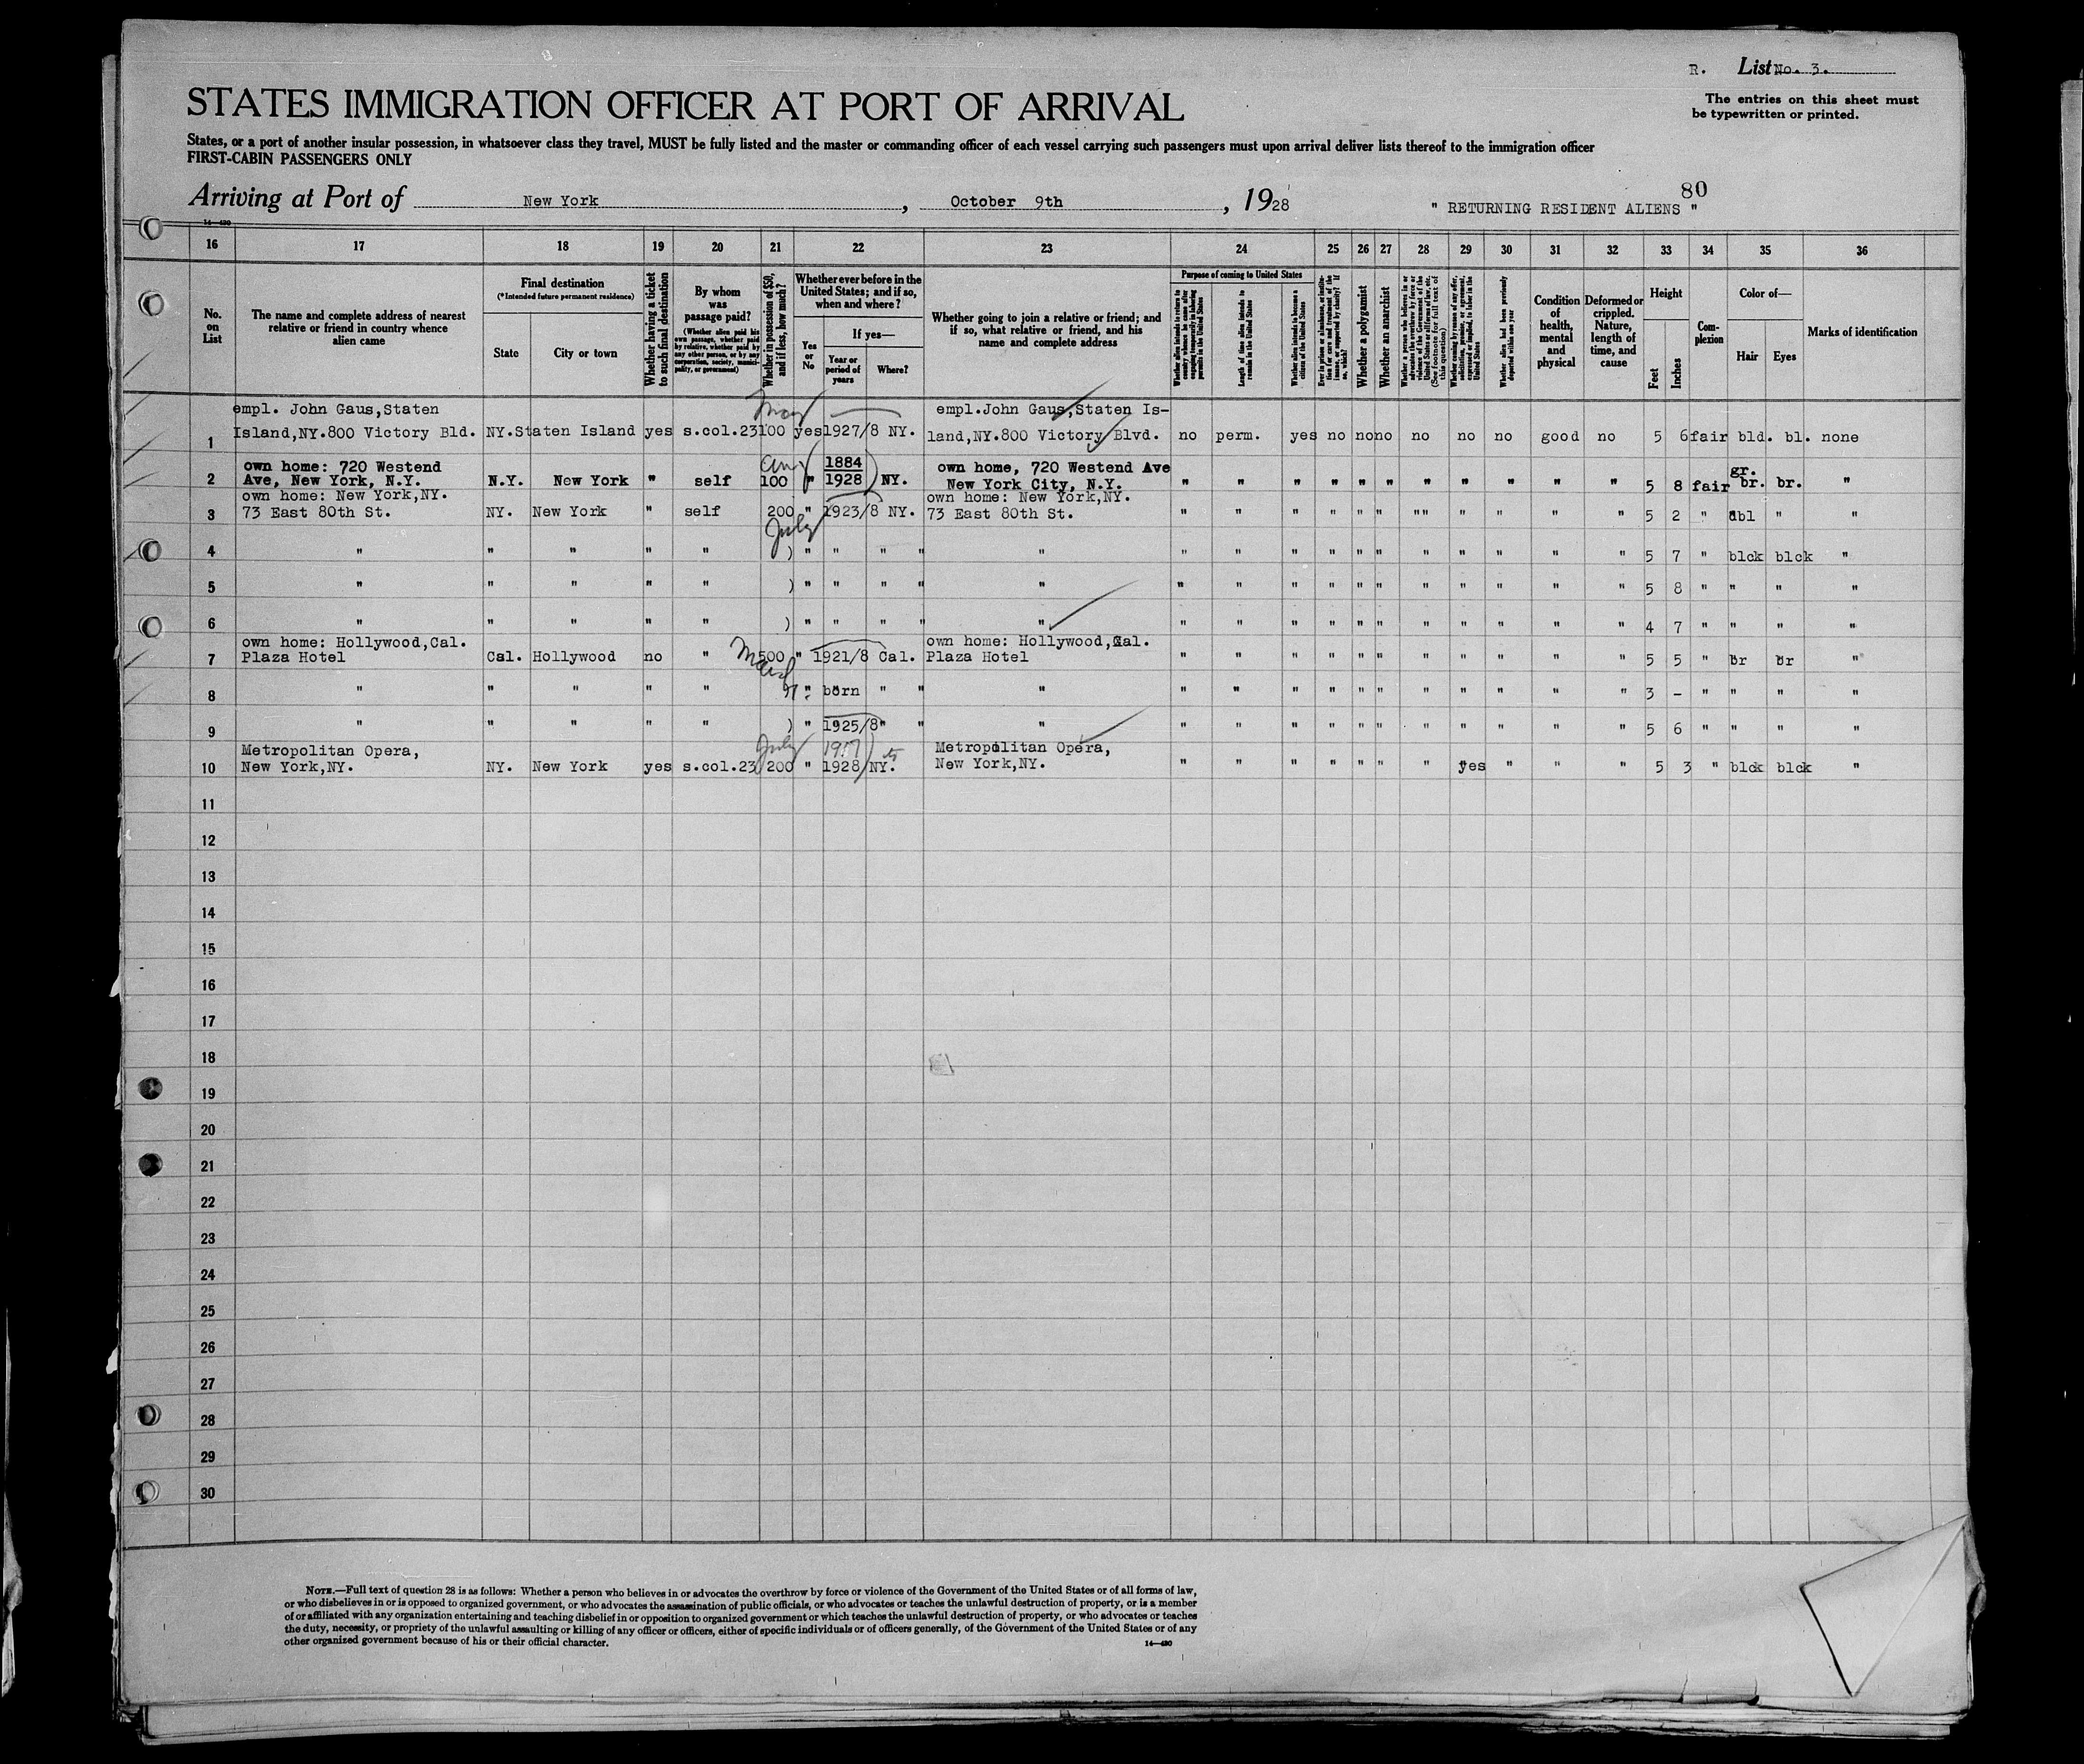 R. List No. 3.
STATES IMMIGRATION OFFICER AT PORT OF ARRIVAL
The entries on this sheet must
be typewritten or printed.
States, or a port of another insular possession, in whatsoever class they travel, MUST be fully listed and the master or commanding officer of each vessel carrying such passengers must upon arrival deliver lists thereof to the immigration officer
FIRST-CABIN PASSENGERS ONLY
Arriving at Port of New York, October 9th, 1928
80
" RETURNING RESIDENT ALIENS "
16 17 18 19 20 21 22 23 24 25 26 27 28 29 30 31 32 33 34 35 36
No. on List
The name and complete address of nearest relative or friend in country whence alien came
Final destination
(*Intended future permanent residence)
State
City or town
Whether having a ticket to such final destination
By whom was passage paid?
(Whether alien paid his own passage, whether paid by relative, whether paid by any other person, or by any corporation, society, municipality, or government)
Whether in possession of $50, and if less, how much?
Whether ever before in the United States; and if so, when and where?
Yes or No
If yes—
Year or period of years
Where?
Whether going to join a relative or friend; and if so, what relative or friend, and his name and complete address
Purpose of coming to United States
Length of time alien intends to remain in the United States
Whether alien intends to become a citizen of the United States
Whether a polygamist
Whether an anarchist
Condition of health, mental and physical
Deformed or crippled. Nature, length of time, and cause
Height
Feet
Inches
Complexion
Color of—
Hair
Eyes
Marks of identification
May
empl. John Gaus,Staten empl.John Gaus,Staten Is-
1 Island,NY.800 Victory Bld. NY.Staten Island yes s.col.23 100 yes 1927/8 NY. land,NY.800 Victory Blvd. no perm. yes no no no no no no good no 5 6 fair bld. bl. none
own home: 720 Westend Aug 1884 own home, 720 Westend Ave gr.
2 Ave, New York, N.Y. N.Y. New York " self 100 " 1928 NY. New York City, N.Y. " " " " " " " " " " " 5 8 fair br. br. "
own home: New York,NY. own home: New York,NY.
3 73 East 80th St. NY. New York " self 200 " 1923/8 NY. 73 East 80th St. " " " " " " "" " " " " 5 2 " dbl " "
July
4 " " " " " ) " " " " " " " " " " " " " " " " 5 7 " blck blck "
5 " " " " " ) " " " " " " " " " " " " " " " " 5 8 " " " "
6 " " " " " ) " " " " " " " " " " " " " " " " 4 7 " " " "
own home: Hollywood,Cal. own home: Hollywood,Cal.
7 Plaza Hotel Cal. Hollywood no " March 500 " 1921/8 Cal. Plaza Hotel " " " " " " " " " " " 5 5 " br br "
8 " " " " " " born " " " " " " " " " " " " " " 3 - " " " "
9 " " " " " ) " 1925/8 " " " " " " " " " " " " " " 5 6 " " " "
Metropolitan Opera, July 1917 Metropolitan Opera,
10 New York,NY. NY. New York yes s.col.23 200 " 1928 NY. New York,NY. " " " " " " " yes " " " 5 3 " blck blck "
11
12
13
14
15
16
17
18
19
20
21
22
23
24
25
26
27
28
29
30
NOTE.—Full text of question 28 is as follows: Whether a person who believes in or advocates the overthrow by force or violence of the Government of the United States or of all forms of law,
or who disbelieves in or is opposed to organized government, or who advocates the assassination of public officials, or who advocates or teaches the unlawful destruction of property, or is a member
of or affiliated with any organization entertaining and teaching disbelief in or opposition to organized government or which teaches the unlawful destruction of property, or who advocates or teaches
the duty, necessity, or propriety of the unlawful assaulting or killing of any officer or officers, either of specific individuals or of officers generally, of the Government of the United States or of any
other organized government because of his or their official character.
14—430